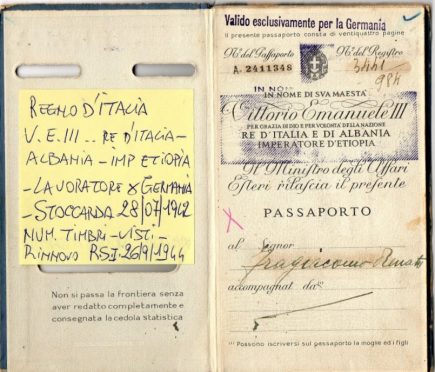 REGNO D'ITALIA
V.E.III.. RE D'ITALIA-
ALBANIA - IMP ETIOPIA
-LAVORATORE X GERMANIA
-STOCCARDA 28/07/1942
NUM. TIMBRI-VISTI-
RINNOVO RSI-26/9/1944
Non si passa la frontiera senza
aver redatto completamente e
consegnata la cedola statistica
Valido esclusivamente per la Germania
Il presente passaporto consta di ventiquattro pagine
No. del Passaporto No. del Registro
A. 2411348
984
IN NOM
IN NOME DI SVA MAESTÀ
Vittorio Emanuele III
PER GRAZIA DI DIO E PER VOLONTÀ DELLA NAZIONE
RE D'ITALIA E DI ALBANIA
IMPERATORE D'ETIOPIA
Il Ministro degli Affari
Esteri rilascia il presente
PASSAPORTO
al Signor
Fragiacomo
accompagnat da*
*Possono iscriversi sul passaporto la moglie ed i figli